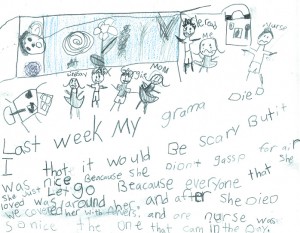 Nurse
Me
Mom
Last week MY grama DieD
I that it would Be scary But it
was nice Because she Didnt gassp for air
she Just Let go Beacause everyone that she
loved was around her, and after she DieD
we covered her with flowers. and are nurse was
so nice the one that cam in the Day.